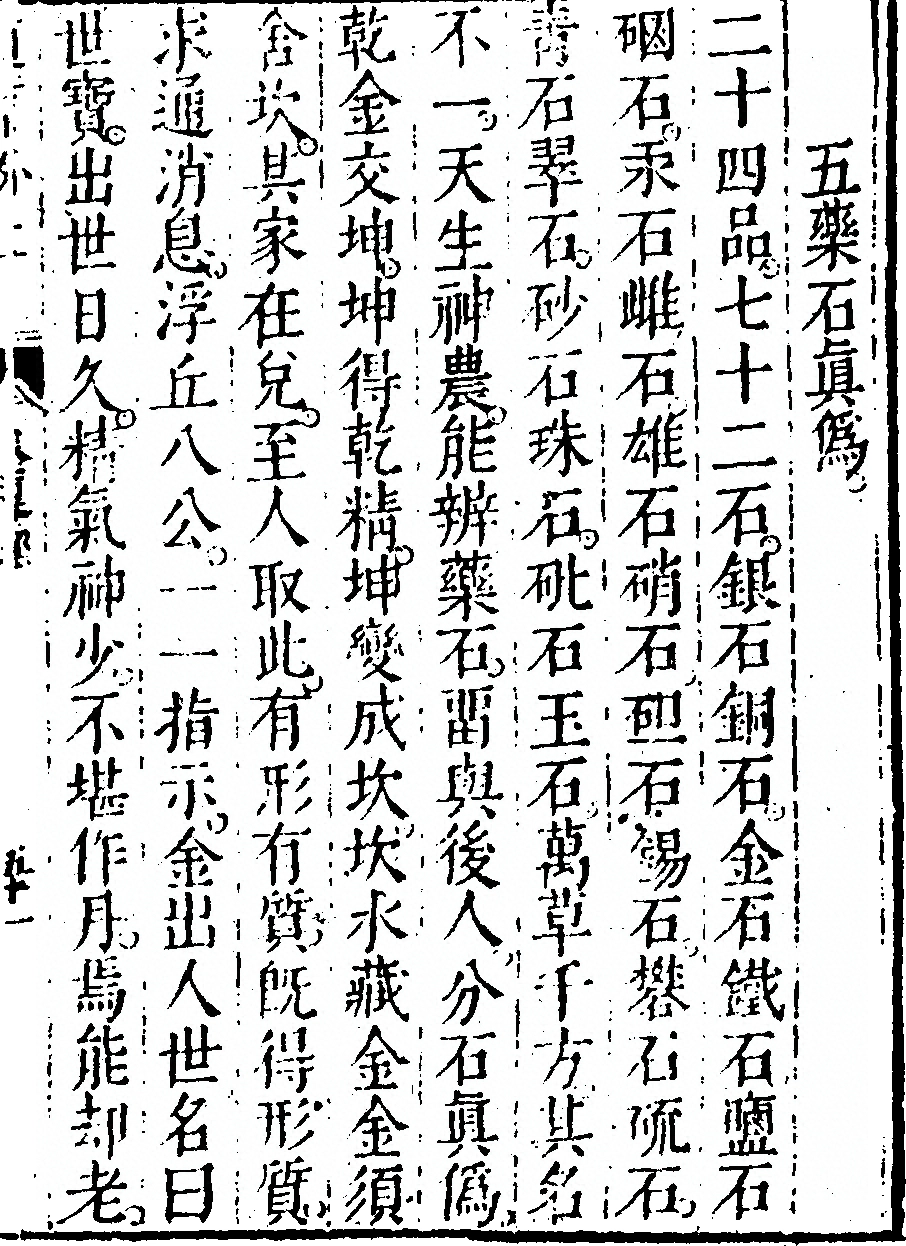 五藥石眞僞
二十四品七十二石銀石銅石金石鐵石鹽石
硇石汞石雌石雄石硝石砠石錫石礬石硫石
靑石翠石砂石珠石砒石玉石萬草千方其名
不一天生神農能辨藥石畱與後人分石眞僞
乾金交坤坤得乾精坤變成坎坎水藏金金須
舍坎其家在兌至人取此有形有質旣得形質
求通消息浮丘八公一一指示金出人世名曰
世寶出世日久精氣神少不堪作丹焉能却老